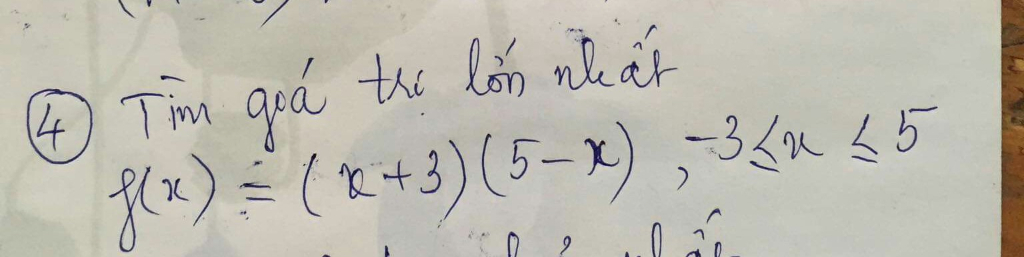 ④ Tìm giá trị lớn nhất
f(x) = (x+3)(5-x) , -3≤x ≤ 5